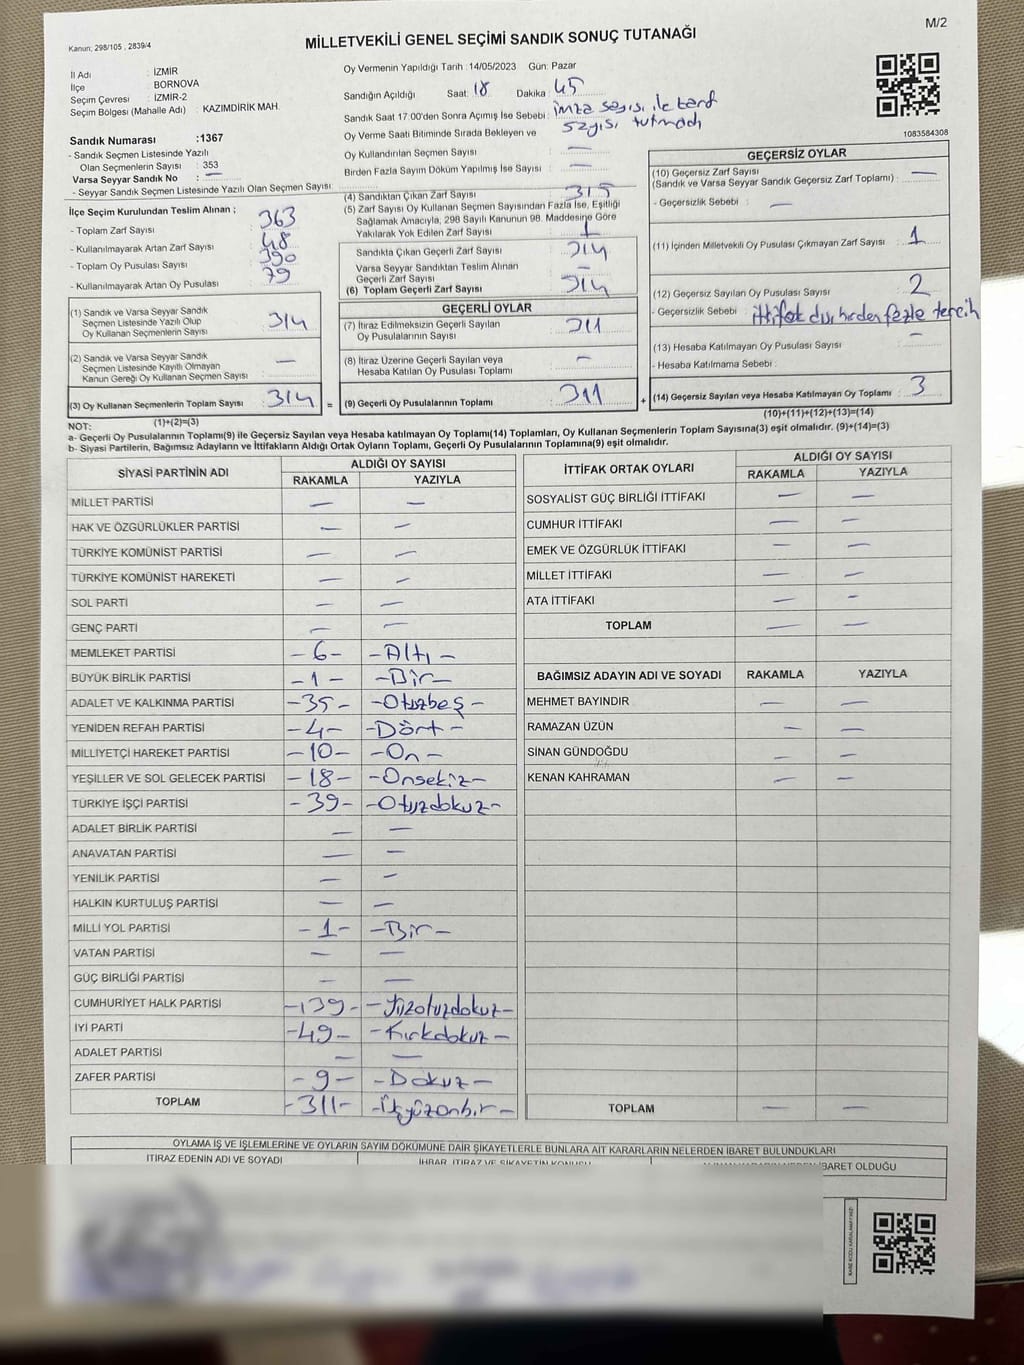 M/2
Kanun; 298/105 , 2839/4
MİLLETVEKİLİ GENEL SEÇİMİ SANDIK SONUÇ TUTANAĞI
İl Adı : İZMİR
İlçe : BORNOVA
Seçim Çevresi : İZMİR-2
Seçim Bölgesi (Mahalle Adı) : KAZIMDİRİK MAH.
Sandık Numarası :1367
- Sandık Seçmen Listesinde Yazılı
Olan Seçmenlerin Sayısı : 353
Varsa Seyyar Sandık No : —
- Seyyar Sandık Seçmen Listesinde Yazılı Olan Seçmen Sayısı:
Oy Vermenin Yapıldığı Tarih :14/05/2023 Gün: Pazar
Sandığın Açıldığı Saat: 18 Dakika : 45
Sandık Saat 17.00'den Sonra Açımış İse Sebebi : imza sayısı ile zarf
sayısı tutmadı
Oy Verme Saati Bitiminde Sırada Bekleyen ve
Oy Kullandırılan Seçmen Sayısı : —
Birden Fazla Sayım Döküm Yapılmış İse Sayısı : —
1083584308
İlçe Seçim Kurulundan Teslim Alınan ;
- Toplam Zarf Sayısı : 363
- Kullanılmayarak Artan Zarf Sayısı : 48
- Toplam Oy Pusulası Sayısı : 390
- Kullanılmayarak Artan Oy Pusulası : 79
(1) Sandık ve Varsa Seyyar Sandık
Seçmen Listesinde Yazılı Olup
Oy Kullanan Seçmenlerin Sayısı : 314
(2) Sandık ve Varsa Seyyar Sandık
Seçmen Listesinde Kayıtlı Olmayan
Kanun Gereği Oy Kullanan Seçmen Sayısı : —
(3) Oy Kullanan Seçmenlerin Toplam Sayısı : 314 =
(1)+(2)=(3)
(4) Sandıktan Çıkan Zarf Sayısı : 315
(5) Zarf Sayısı Oy Kullanan Seçmen Sayısından Fazla İse, Eşitliği
Sağlamak Amacıyla, 298 Sayılı Kanunun 98. Maddesine Göre
Yakılarak Yok Edilen Zarf Sayısı : 1
Sandıkta Çıkan Geçerli Zarf Sayısı : 314
Varsa Seyyar Sandıktan Teslim Alınan
Geçerli Zarf Sayısı : —
(6) Toplam Geçerli Zarf Sayısı : 314
GEÇERLİ OYLAR
(7) İtiraz Edilmeksizin Geçerli Sayılan
Oy Pusulalarının Sayısı : 311
(8) İtiraz Üzerine Geçerli Sayılan veya
Hesaba Katılan Oy Pusulası Toplamı : —
(9) Geçerli Oy Pusulalarının Toplamı : 311 +
GEÇERSİZ OYLAR
(10) Geçersiz Zarf Sayısı
(Sandık ve Varsa Seyyar Sandık Geçersiz Zarf Toplamı) : —
- Geçersizlik Sebebi : —
(11) İçinden Milletvekili Oy Pusulası Çıkmayan Zarf Sayısı : 1
(12) Geçersiz Sayılan Oy Pusulası Sayısı : 2
- Geçersizlik Sebebi : ittifak dışı birden fazla tercih
(13) Hesaba Katılmayan Oy Pusulası Sayısı : —
- Hesaba Katılmama Sebebi :
(14) Geçersiz Sayılan veya Hesaba Katılmayan Oy Toplamı : 3
(10)+(11)+(12)+(13)=(14)
NOT:
a- Geçerli Oy Pusulalarının Toplamı(9) ile Geçersiz Sayılan veya Hesaba katılmayan Oy Toplamı(14) Toplamları, Oy Kullanan Seçmenlerin Toplam Sayısına(3) eşit olmalıdır. (9)+(14)=(3)
b- Siyasi Partilerin, Bağımsız Adayların ve İttifakların Aldığı Ortak Oyların Toplamı, Geçerli Oy Pusulalarının Toplamına(9) eşit olmalıdır.
SİYASİ PARTİNİN ADI ALDIĞI OY SAYISI
RAKAMLA YAZIYLA
MİLLET PARTİSİ — —
HAK VE ÖZGÜRLÜKLER PARTİSİ — —
TÜRKİYE KOMÜNİST PARTİSİ — —
TÜRKİYE KOMÜNİST HAREKETİ — —
SOL PARTİ — —
GENÇ PARTİ — —
MEMLEKET PARTİSİ -6- -Altı-
BÜYÜK BİRLİK PARTİSİ -1- -Bir-
ADALET VE KALKINMA PARTİSİ -35- -Otuzbeş-
YENİDEN REFAH PARTİSİ -4- -Dört-
MİLLİYETÇİ HAREKET PARTİSİ -10- -On-
YEŞİLLER VE SOL GELECEK PARTİSİ -18- -Onsekiz-
TÜRKİYE İŞÇİ PARTİSİ -39- -Otuzdokuz-
ADALET BİRLİK PARTİSİ — —
ANAVATAN PARTİSİ — —
YENİLİK PARTİSİ — —
HALKIN KURTULUŞ PARTİSİ — —
MİLLİ YOL PARTİSİ -1- -Bir-
VATAN PARTİSİ — —
GÜÇ BİRLİĞİ PARTİSİ — —
CUMHURİYET HALK PARTİSİ -139- -Yüzotuzdokuz-
İYİ PARTİ -49- -Kırkdokuz-
ADALET PARTİSİ — —
ZAFER PARTİSİ -9- -Dokuz-
TOPLAM -311- -Üçyüzonbir-
İTTİFAK ORTAK OYLARI ALDIĞI OY SAYISI
RAKAMLA YAZIYLA
SOSYALİST GÜÇ BİRLİĞİ İTTİFAKI — —
CUMHUR İTTİFAKI — —
EMEK VE ÖZGÜRLÜK İTTİFAKI — —
MİLLET İTTİFAKI — —
ATA İTTİFAKI — —
TOPLAM — —
BAĞIMSIZ ADAYIN ADI VE SOYADI RAKAMLA YAZIYLA
MEHMET BAYINDIR — —
RAMAZAN ÜZÜN — —
SİNAN GÜNDOĞDU — —
KENAN KAHRAMAN — —
TOPLAM — —
OYLAMA İŞ VE İŞLEMLERİNE VE OYLARIN SAYIM DÖKÜMÜNE DAİR ŞİKAYETLERLE BUNLARA AİT KARARLARIN NELERDEN İBARET BULUNDUKLARI
İTİRAZ EDENİN ADI VE SOYADI İHBAR, İTİRAZ VE ŞİKAYETİN KONUSU İBARET OLDUĞU